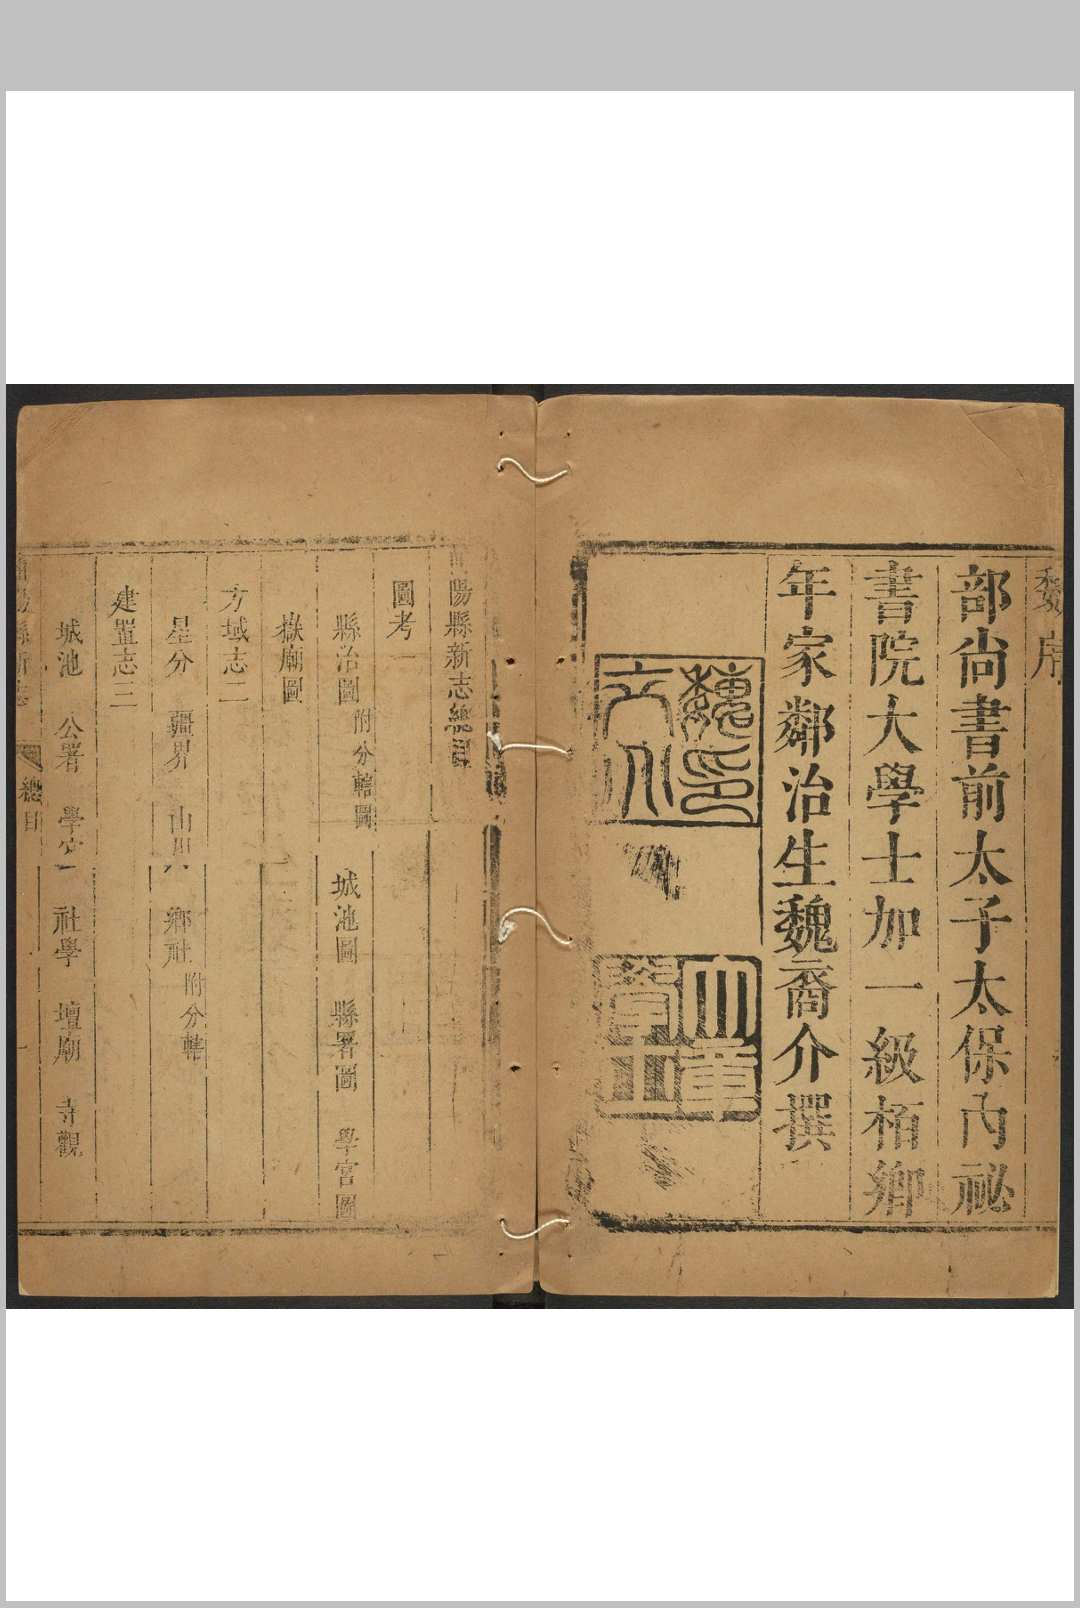 魏序
部尙書前太子太保內祕
書院大學士加一級栢鄉
年家鄰治生魏裔介撰
魏裔介印
陽縣新志總目
圖考一
縣治圖 附分轄圖 城池圖 縣署圖 學宮圖
嶽廟圖
方域志二
星分 疆界 山川 鄉社 附分轄
建置志三
城池 公署 學宮 社學 壇廟 寺觀
縣新志 總目